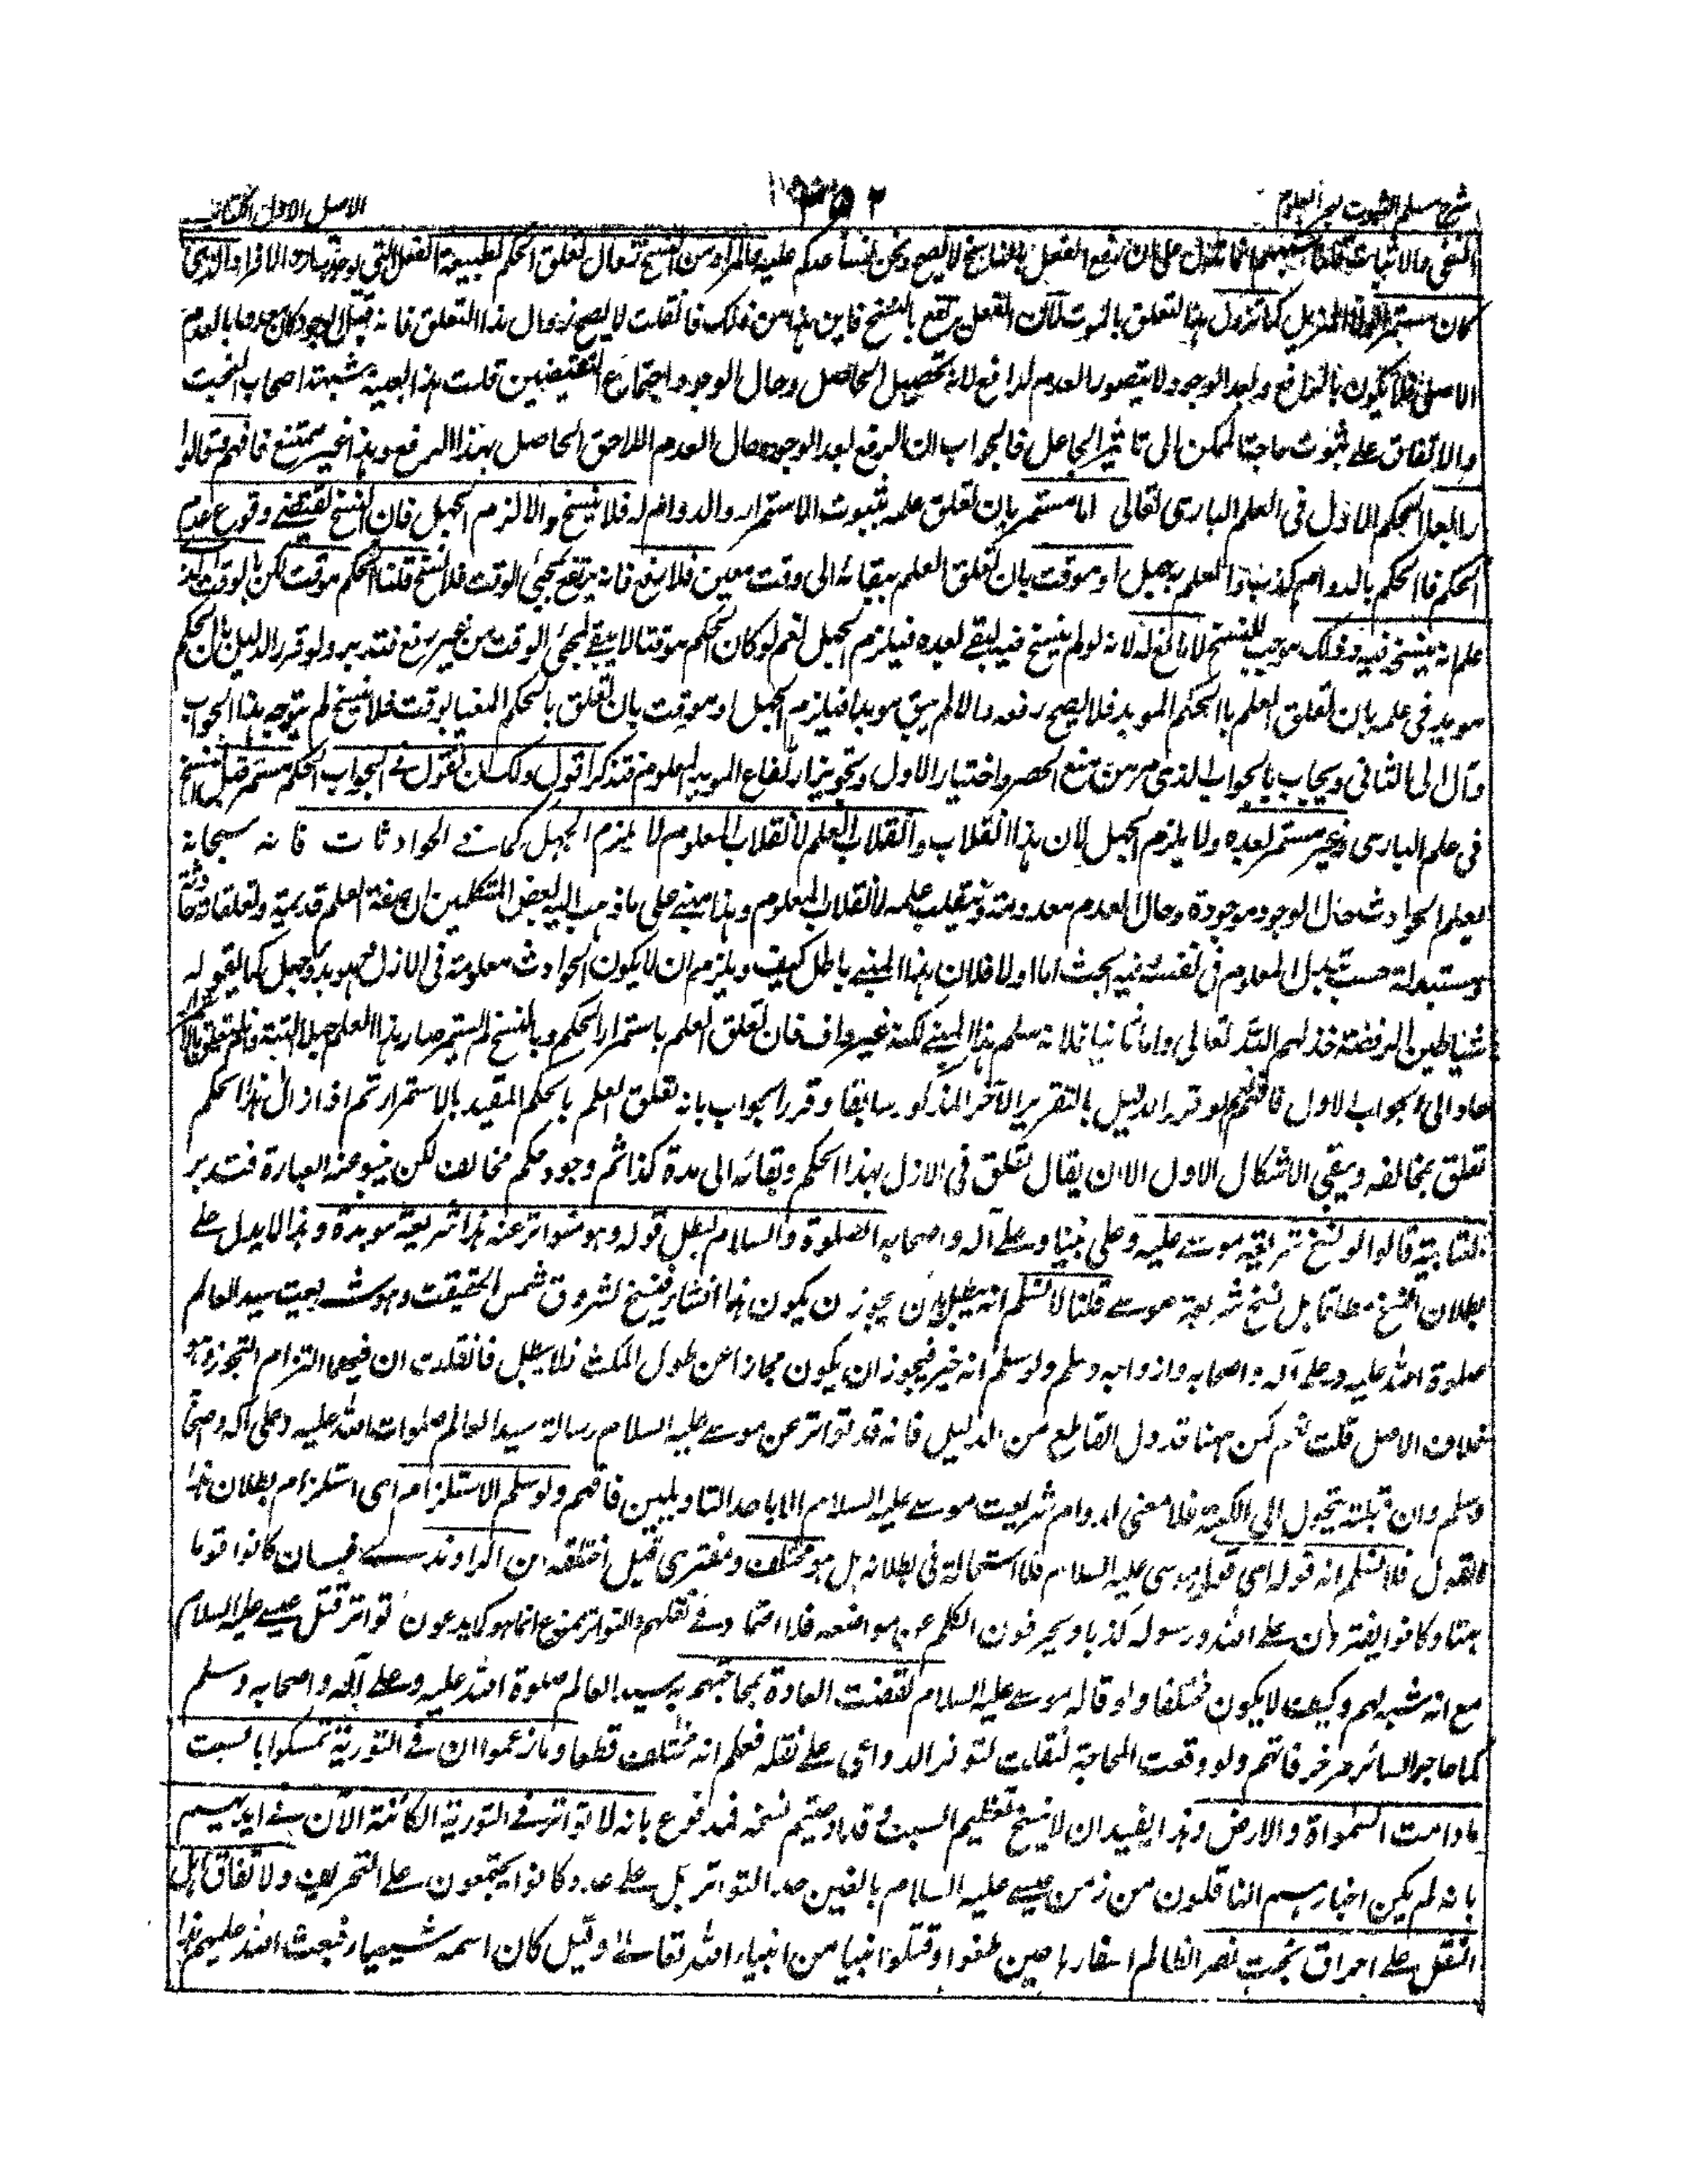 شرح مسلم الثبوت لبحر العلوم
٣٥٢
الاصل الاول الكتاب
النفي والاثبات قلنا شبهتهم انما تدل على ان رفع الفعل بالناسخ لا يصح ونحن نساعدكم عليه والمراد من النسخ زوال تعلق الحكم لطبيعة الفعل التي يوجد بتبادل الافراد الذي
كان مستمرا لولا المزيل كما تزول هذا التعلق بالموت لا ان الفعل يرتفع بالنسخ فاين هذا من ذلك فان قلت لا يصح زوال هذا التعلق فانه قبل الوجود كان معدوما بالعدم
الاصلي فلا يكون بالرافع وبعد الوجود لا يتصور العدم لرافع لانه تحصيل الحاصل وحال الوجود اجتماع النقيضين قلت هذا بعينه شبهة اصحاب البخت
والاتفاق على ثبوت حاجة الممكن الى تاثير الجاعل فالجواب ان الرفع بعد الوجود حال العدم اللاحق الحاصل بهذا الرفع وهذا غير ممتنع فافهم قالوا
رابعا الحكم الاول في العلم الباري تعالى اما مستمر بان تعلق علمه بثبوت الاستمرار والدوام له فلا ينسخ والا لزم الجهل فان النسخ يقتضي وقوع عدم
الحكم فالحكم بالدوام كذب والعلم به جهل او موقت بان تعلق العلم ببقائه الى وقت معين فلا رفع فانه يرتفع بمجيئ الوقت فلا نسخ قلنا الحكم موقت لكن بالوقت الذي
علم انه ينسخ فيه وذلك موجب للنسخ لا مانع له لانه لو لم ينسخ فيه لبقي بعده فيلزم الجهل نعم لو كان الحكم موقتا لا يبقى لمجيئ الوقت من غير رفع فتدبر ولو قرر الدليل بان الحكم
موبد في علمه بان تعلق العلم بالحكم الموبد فلا يصح رفعه والا لم يبق موبدا فيلزم الجهل او موقت بان تعلق بالحكم المغيا بوقت فلا نسخ لم يتوجه هذا الجواب
وآل الى الثاني ويجاب بالجواب الذي مر من منع الحصر واختيار الاول وتجويز ارتفاع الموبد المعلوم فتذكر اقول ولك ان تقول في الجواب الحكم مستمر قبل النسخ
في علم الباري وغير مستمر بعده ولا يلزم الجهل لان هذا انقلاب وانقلاب العلم لانقلاب المعلوم لا يلزم الجهل كما في الحوادثات فانه سبحانه
يعلم الحوادث حال الوجود موجودة وحال العدم معدومة وتنقلب علمه لانقلاب المعلوم وهذا مبني على ما ذهب اليه بعض المتكلمين ان صفة العلم قديمة وتعلقاته حادثة
ومتبدلة حسب تبدل المعلوم في نفسه فيه بحث اما اولا فلان هذا المبنى باطل كيف ويلزم ان لا يكون الحوادث معلومة في الازل فهو بدو جهل كما يقوله
شياطين الرفضة خذلهم الله تعالى واما ثانيا فلانه سلم هذا المبنى لكنه غير واف فان تعلق العلم باستمرار الحكم وبالنسخ لم يستمر صار هذا العلم جهلا البتة وان تعلق بالاستمرار
عاد الى الجواب الاول فافهم ولو قرر الدليل بالتقرير الآخر المذكور سابقا وقرر الجواب بانه تعلق العلم بالحكم المقيد بالاستمرار ثم اذا زال هذا الحكم
تعلق بمخالفه ويبقى الاشكال الاول الا ان يقال تعلق في الازل بهذا الحكم وبقائه الى مدة كذا ثم وجود حكم مخالف لكن ينبو عنه العبارة فتدبر
الكتابية قالوا لو نسخ شريعة موسى عليه وعلى نبينا وعلى آله واصحابه الصلوة والسلام لبطل قوله وهو متواتر عنه هذا شريعة موبدة وهذا لا يدل على
بطلان النسخ مطلقا بل نسخ شريعة موسى قلنا لا نسلم انه يبطل لان يجوز ان يكون هذا انشاء فينسخ لشروق شمس الحقيقت وهو شريعت سيد العالم
صلوة الله عليه وعلى آله واصحابه وازواجه وسلم ولو سلم انه خبر فيجوز ان يكون مجازا عن طول المكث فلا يبطل فان قلت ان فيهما التزام التجوز وهو
خلاف الاصل قلت نعم لكن ههنا قد دل القاطع من الدليل فانه قد تواتر عن موسى عليه السلام رسالة سيد العالم صلوات الله عليه وعلى آله وصحابه
وسلم وان قبلته يتحول الى الكعبة فلا معنى لدوام شريعت موسى عليه السلام الا باحد التاويلين فافهم ولو سلم الاستلزام اى استلزام بطلان هذا
القول فلا نسلم انه قوله اى قول موسى عليه السلام فلا استحالة في بطلانه بل هو مختلق ومفترى قيل اختلقه ابن الراوندي فيسان كانوا قوما
بهتا وكانوا يفترون على الله ورسوله كذبا ويحرفون الكلم عن مواضعه فلا اعتماد في نقلهم والتواتر ممنوع انما هو كما يدعون تواتر قتل عيسى عليه السلام
مع انه شبه لهم وكيف لا يكون مختلقا ولو قاله موسى عليه السلام لقضت العادة بمحاجتهم به سيد العالم صلوة الله عليه وعلى آله واصحابه وسلم
كما حاجوا لسائر مزخرفاتهم ولو وقعت المحاجة لنقلت لتوفر الدواعي على نقله فعلم انه مختلق قطعا وما زعموا ان في التورية تمسكوا بالسبت
ما دامت السموات والارض وهذا يفيد ان لا ينسخ تعظيم السبت وقد ادعيتم نسخه فمدفوع بانه لا تواتر في التورية الكائنة الآن في ايديهم
بانه لم يكن اخبارهم الناقلون من زمن عيسى عليه السلام بالغين حد التواتر بل على عدد كانوا يجتمعون على التحريف ولاتفاق اهل
النقل على احراق بخت نصر الظالم اسفارها حين طغوا وقتلوا نبيا من انبياء الله تعالى وقيل كان اسمه شيعيا فبعث الله عليهم هذا